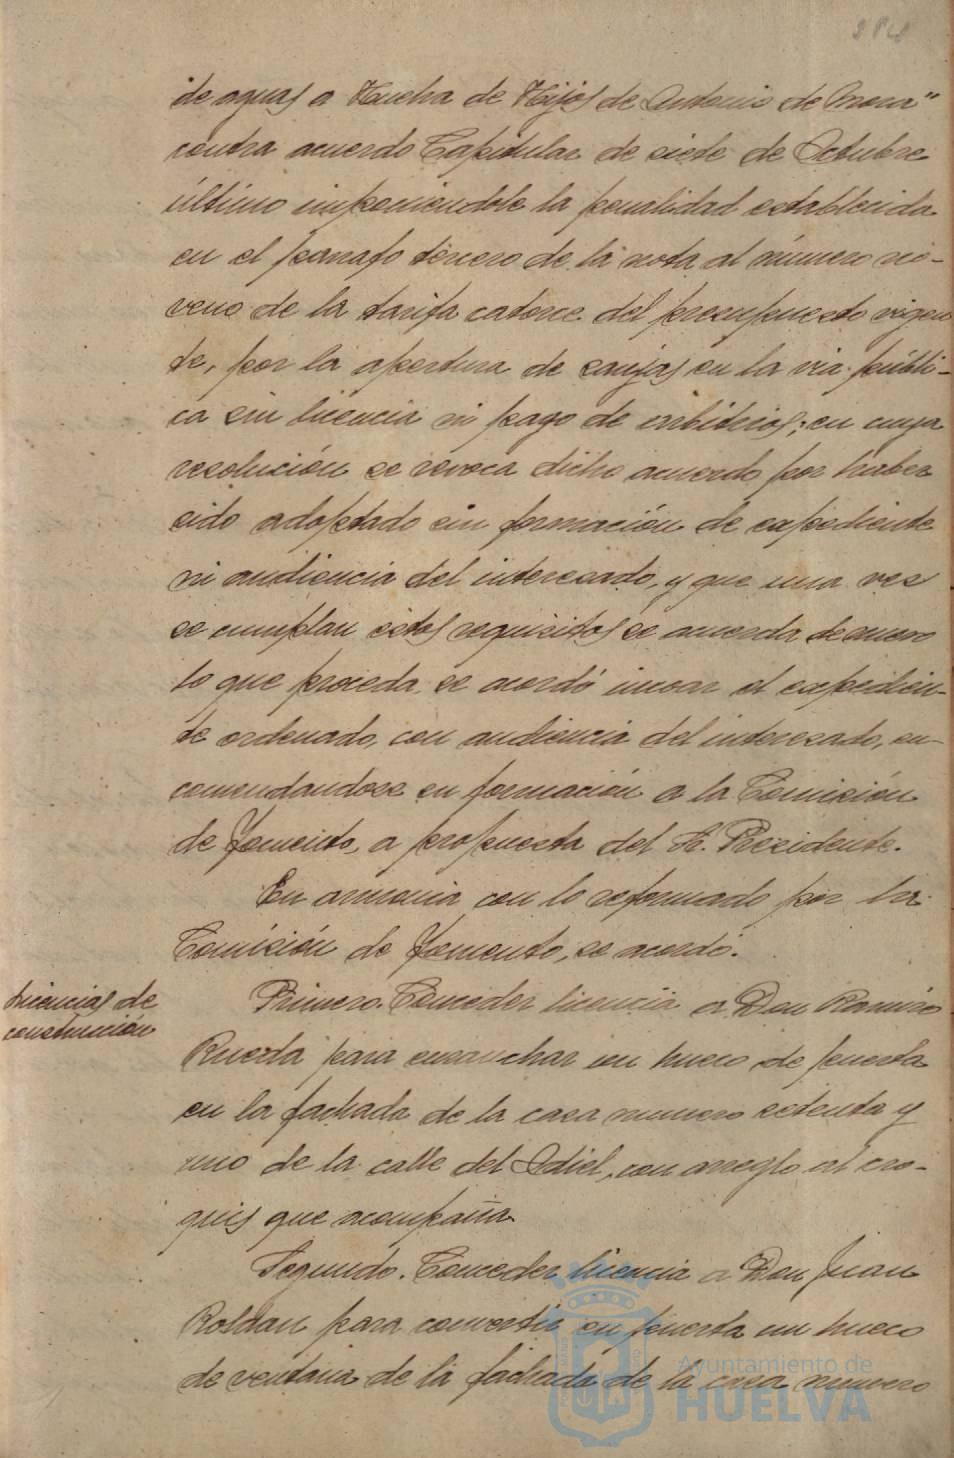 de aguas a Huelva de Hijos de Antonio de Mora"
contra acuerdo Capitular de siete de Octubre
último imponiendole la penalidad establecida
en el parrafo tercero de la nota al número no-
veno de la tarifa catorce del presupuesto vigen
te, por la apertura de zanjas en la via públi-
ca sin licencia ni pago de arbitrios; en cuya
resolución se revoca dicho acuerdo por haber
sido adoptado sin formación de expediente
ni audiencia del interesado, y que una vez
se cumplan estos requisitos se acuerda de nuevo
lo que proceda, se acordó incoar el expedien-
te ordenado, con audiencia del interesado, en-
comendandose su formación a la Comisión
de Fomento, a propuesta del Sr. Presidente.
En armonia con lo informado por la
Comisión de Fomento, se acordó.
Licencias de
construcción
Primero. Conceder licencia a Don Ramiro
Rueda para ensanchar un hueco de puerta
en la fachada de la casa numero setenta y
uno de la calle del Odiel, con arreglo al cro-
quis que acompaña.
Segundo. Conceder licencia a Don Juan
Roldan para convertir en puerta un hueco
de ventana de la fachada de la casa numero
Ayuntamiento de
HUELVA